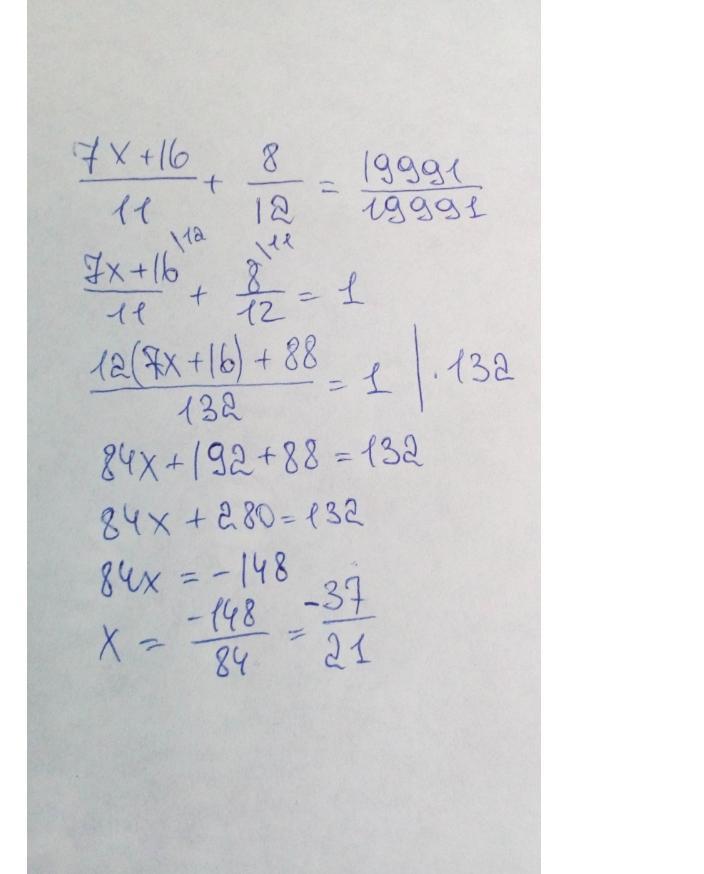 7x+16/11 + 8/12 = 19991/19991
7x+16\12/11 + 8\11/12 = 1
12(7x+16)+88/132 = 1 | ·132
84x+192+88=132
84x+280=132
84x=-148
x = -148/84 = -37/21